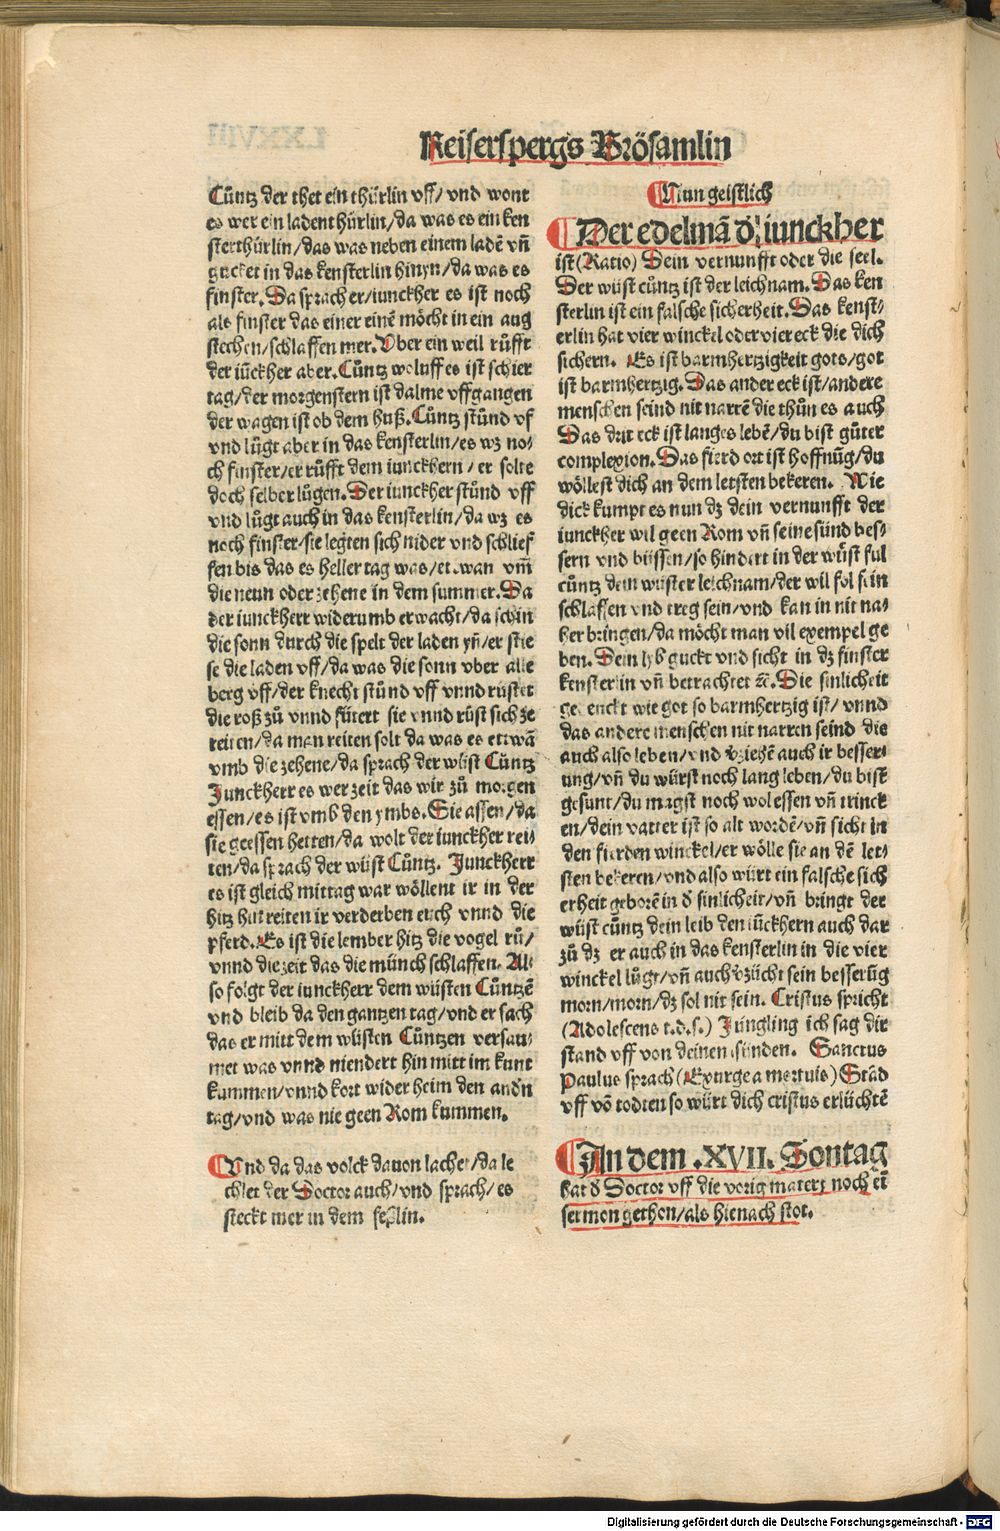 Keiserspergs Brösamlin
Cůntz der thet ein thürlin vff/ vnd wont
es wer ein ladenthürlin/da was es ein ken
sterthürlin/das was neben einem ladē vñ
gucket in das kensterlin hinyn/da was es
finster. Da sprach er/iunckher es ist noch
als finster das einer einē möcht in ein aug
stechen/schlaffen mer. Vber ein weil růfft
der iūckher aber. Cůntz woluff es ist schier
tag/der morgenstern ist dalme vffgangen
der wagen ist ob dem huß. Cůntz stůnd vf
vnd lůgt aber in das kensterlin/es wz no/
ch finster/er růfft dem iunckhern/ er solte
doch selber lůgen. Der iunckher stůnd vff
vnd lůgt auch in das kensterlin/da wz es
noch finster/sie legten sich nider vnd schlief
fen bis das es heller tag was/etwan vm̄
die neun oder zehene in dem summer. Da
der iunckherr widerumb erwacht/da schin
die sonn durch die spelt der laden yñ/er stie
se die laden vff/da was die sonn vber alle
berg vff/der knecht stůnd vff vnnd rüstet
die roß zů vnnd fütert sie vnnd rüst sich ze
reiten/da man reiten solt da was es etwā
vmb die zehene/da sprach der wüst Cůntz
Junckherr es wer zeit das wir zů morgen
essen/es ist vmb den ymbs. Sie assen/da
sie geessen hetten/da wolt der iunckher rei/
ten/da sprach der wüst Cůntz. Junckherr
es ist gleich mittag war wöllent ir in der
hitz hut reiten ir verderben euch vnnd die
pferd. Es ist die lember hitz die vogel rů/
vnnd die zeit das die münch schlaffen. Al/
so folgt der iunckherr dem wüsten Cůntzē
vnd bleib da den gantzen tag/vnd er sach
das er mitt dem wüsten Cůntzen versau/
met was vnnd niendert hin mitt im kunt
kummen/vnnd kort wider heim den andn̄
tag/vnd was nie geen Rom kummen.
Vnd da das volck dauon lachet/da le
chlet der Doctor auch/vnd sprach/ es
steckt mer in dem feßlin.
Nun geistlich
Der edelmā d' iunckher
ist (Ratio) Dein vernunfft oder die seel.
Der wüst cůntz ist der leichnam. Das ken
sterlin ist ein falsche sicherheit. Das kenst/
erlin hat vier winckel oder vier eck die dich
sichern. Es ist barmhertzigkeit gots/got
ist barmhertzig. Das ander eck ist/andere
menschen seind nit narrē die thůn es auch
Das drit eck ist langes lebē/du bist gůter
complexion. Das fierd ort ist hoffnūg/du
wöllest dich an dem letsten bekeren. Wie
dick kumpt es nun dz dein vernunfft der
iunckher wil geen Rom vñ seine sünd bes/
sern vnd büssen/so hindert in der wüst ful
cůntz dein wüster leichnam/der wil fol sein
schlaffen vnd treg sein/vnd kan in nit na/
her bringen/da möcht man vil exempel ge
ben. Dein lyb guckt vnd sicht in dz finster
kensterlin vñ betrachtet ꝛc̄. Die sinlicheit
gedenckt wie got so barmhertzig ist/ vnnd
das andere menschen nit narren seind die
auch also leben/vnd v'ziehē auch ir besser/
ung/vñ du würst noch lang leben/du bist
gesunt/du magst noch wol essen vñ trinck
en/dein vatter ist so alt wordē/vñ sicht in
den fierden winckel/er wölle sie an dē let/
sten bekeren/vnd also würt ein falsche sich
erheit geborē in d' sinlicheit/vñ bringt der
wüst cůntz dein leib den iūckhern auch dar
zů dz er auch in das kensterlin in die vier
winckel lůgt/vñ auch v'zücht sein besserūg
morn/morn/dz sol nit sein. Cristus spricht
(Adolescens t.d.s.) Jüngling ich sag dir
stand vff von deinen sünden. Sanctus
Paulus sprach (Exurge a mortuis) Stād
vff vō todten so würt dich cristus erlüchtē
In dem .XVII. Sontag
hat d' Doctor vff die vorig matery noch ei
sermon gethon/als hienach stot.
Digitalisierung gefördert durch die Deutsche Forschungsgemeinschaft - DFG